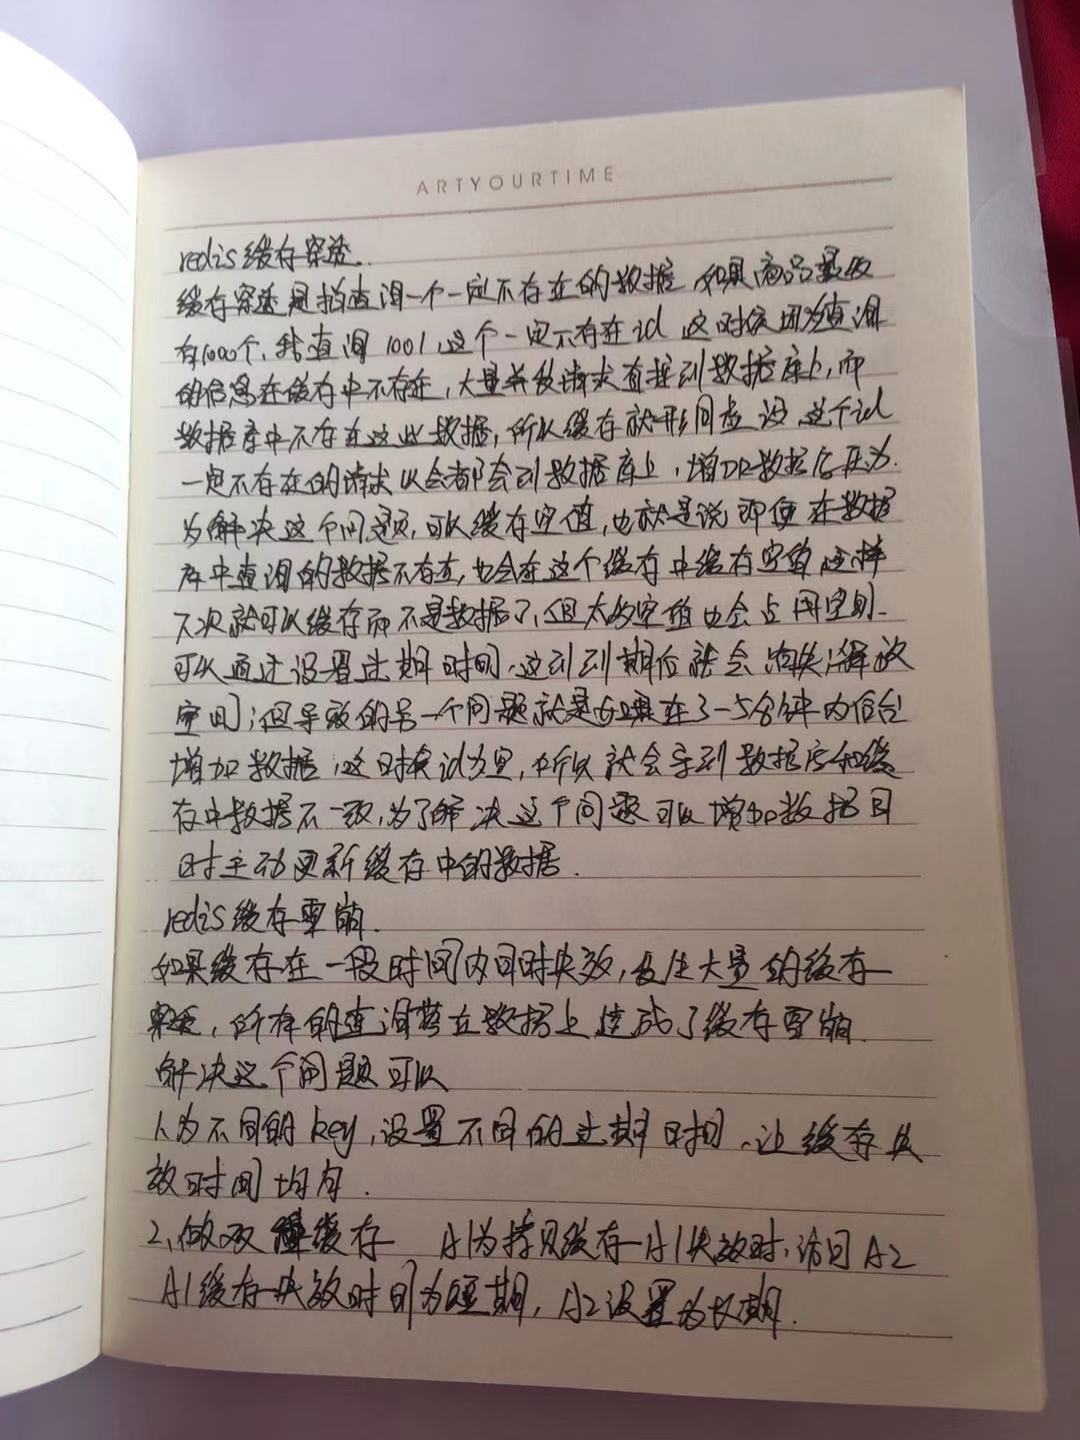 ARTYOURTIME
redis缓存穿透.
缓存穿透是指查询一个一定不存在的数据 如果商品最
有1000个,我查询1001,这个一定不存在id 这时候因为查询
的信息在缓存中不存在,大量并发请求直接到数据库上,而
数据库中不存在这些数据,所以缓存就形同虚设,这个id
一定不存在的请求 都会到数据库上,增加数据库压力.
为解决这个问题,可以缓存空值,也就是说即便在数据
库中查询的数据不存在,也会在这个缓存中缓存空值 这样
下次就可以缓存而不是数据了,但太多空值也会占用空间.
可以通过设置过期时间,这 到期后就会消失,释放
空间;但导致的另一个问题就是如果在3-5分钟内后台
增加数据,这时候id为 ,所以就会导到数据库和缓
存中数据不一致,为了解决这个问题可以增加数据同
时主动更新缓存中的数据.
redis缓存雪崩.
如果缓存在一段时间内同时失效,发生大量的缓存
穿透,所有的查询落在数据上造成了缓存雪崩.
解决这个问题可以
1、为不同的key,设置不同的过期时间,让缓存失
效时间均匀.
2、做双 缓存 A1为拷贝缓存 A1失效时,访问A2
A1缓存失效时间为短期,A2设置为长期.